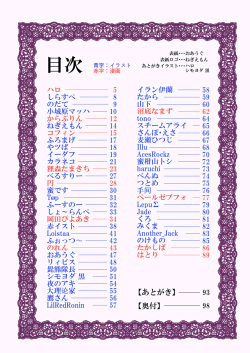 目次
青字：イラスト
赤字：漫画
表紙・・・おあうぐ
表紙ロゴ・・・ねぎえもん
あとがきイラスト・・・ハロ
シモヨダ 黒
ハロ 5
しらすべ 8
のだて 9
小城原マッハ 10
からぶりん 12
ねぎえもん 14
コフィン 15
ふろまげ 17
キツば 18
イーダフ 19
カラネコ 21
狸森たまきち 23
べるすりー 27
円 28
蜜です 30
Tøp 31
ぶーすのー 32
しょ～らんぺ 33
岡田ひよあき 34
赤イスト 38
Loistaa 41
ふぉっつ～ 42
のれん 43
おあうぐ 47
リィビス 48
昆熊隊長 50
シモヨダ 黒 51
夜のアキ 54
大理論家 55
鷹さん 56
LilRedRonin 57
イラン伊蘭 58
たから 59
山下 60
沼底なまず 62
tono 64
スチームアライ 65
さんぽ・えさ 66
麦瀬ひつじ 67
Illu 68
AcesRockz 70
蜜柑山トシ 72
haruchi 73
ぺんぬ 74
つとめ 75
手向 76
ベールゼブフォ 77
Lepu之 79
Jade 80
くろ 81
みくま 82
Another_Jack 83
のけもの 84
たかしば 86
はとり 89
【あとがき】 93
【奥付】 98